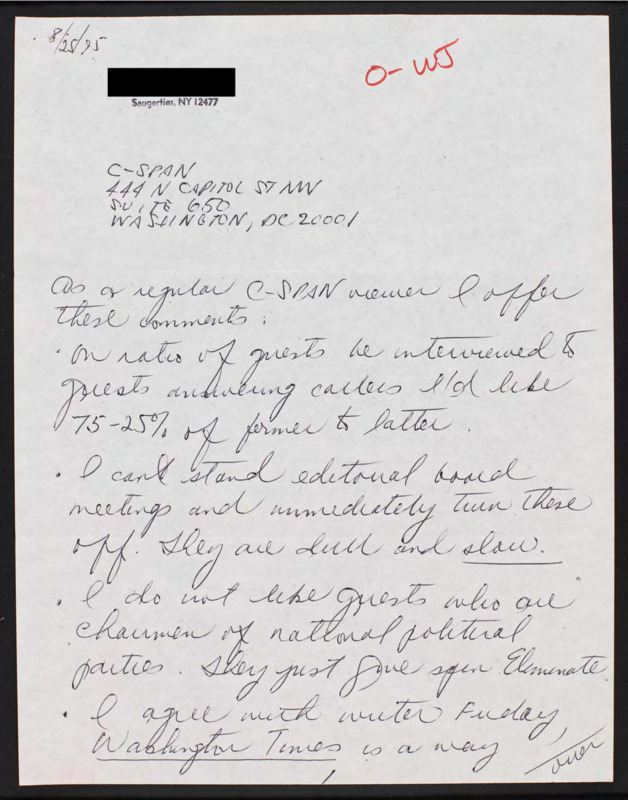 8/25/95
O-WJ
Saugerties, NY 12477
C-SPAN
444 N CAPITOL ST NW
SUITE 650
WASHINGTON, DC 20001
As a regular C-SPAN viewer I offer
these comments:
· On ratio of guests be interviewed to
guests answering callers I'd like
75-25% of former to latter.
· I can't stand editorial board
meetings and immediately turn these
off. They are dull and slow.
· I do not like guests who are
chairmen of national political
parties. They just give spin. Eliminate
· I agree with writer Friday,
Washington Times is a way
over